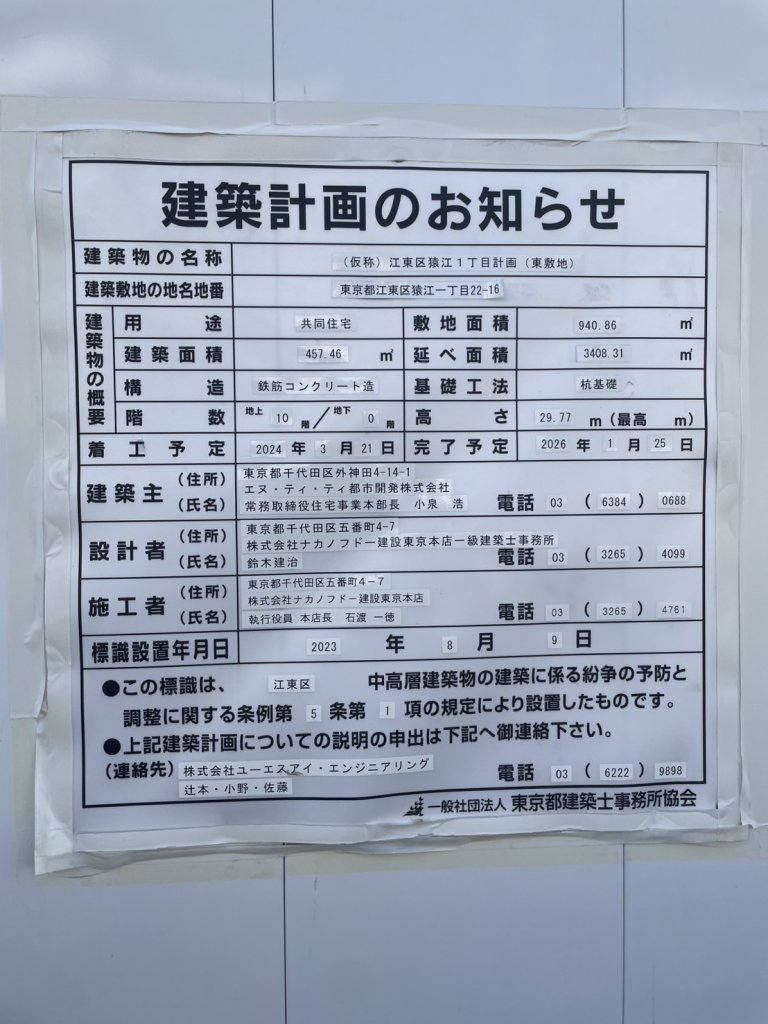 建築計画のお知らせ
建築物の名称 (仮称)江東区猿江1丁目計画(東敷地)
建築敷地の地名地番 東京都江東区猿江一丁目22-16
建築物の概要
用途 共同住宅 敷地面積 940.86 ㎡
建築面積 457.46 ㎡ 延べ面積 3408.31 ㎡
構造 鉄筋コンクリート造 基礎工法 杭基礎
階数 地上 10 階/地下 0 階 高さ 29.77 m(最高 m)
着工予定 2024 年 3 月 21 日 完了予定 2026 年 1 月 25 日
建築主 (住所) 東京都千代田区外神田4-14-1
エヌ・ティ・ティ都市開発株式会社
(氏名) 常務取締役住宅事業本部長 小泉 浩 電話 03 (6384) 0688
設計者 (住所) 東京都千代田区五番町4-7
株式会社ナカノフドー建設東京本店一級建築士事務所
(氏名) 鈴木建治 電話 03 (3265) 4099
施工者 (住所) 東京都千代田区五番町4-7
株式会社ナカノフドー建設東京本店
(氏名) 執行役員 本店長 石渡 一徳 電話 03 (3265) 4761
標識設置年月日 2023 年 8 月 9 日
●この標識は、 江東区 中高層建築物の建築に係る紛争の予防と
調整に関する条例第 5 条第 1 項の規定により設置したものです。
●上記建築計画についての説明の申出は下記へ御連絡下さい。
(連絡先) 株式会社ユーエスアイ・エンジニアリング 電話 03 (6222) 9898
辻本・小野・佐藤
一般社団法人 東京都建築士事務所協会